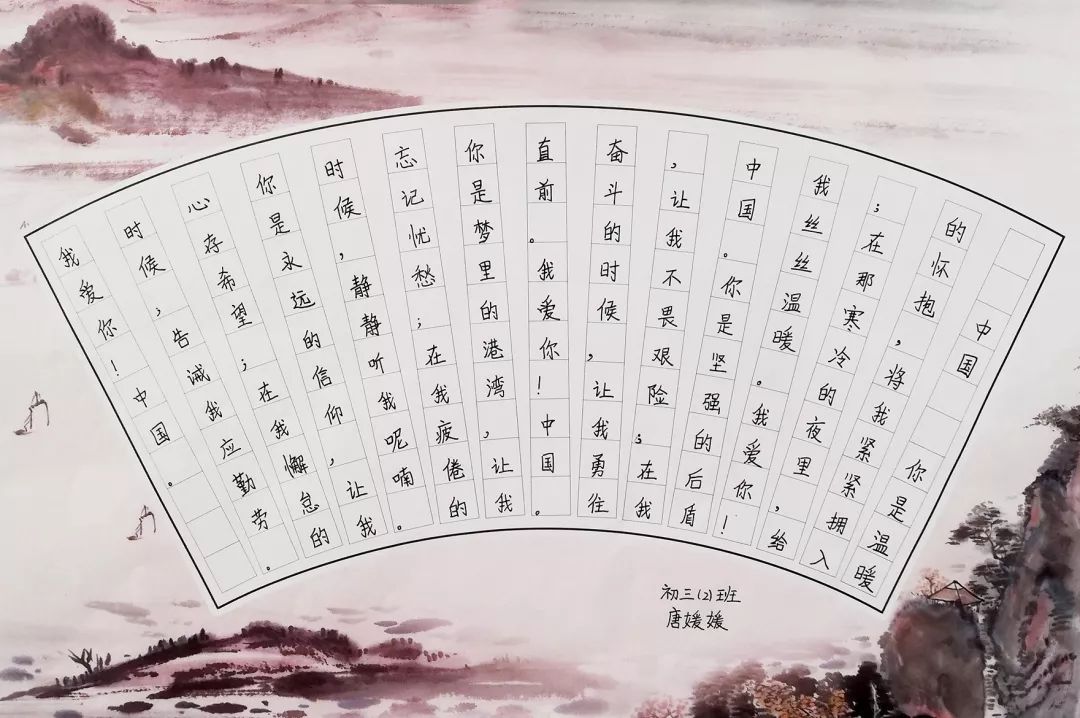 中国　　你是温暖
的怀抱，将我紧紧拥入
；在那寒冷的夜里，给
我丝丝温暖。我爱你！
中国。你是坚强的后盾
，让我不畏艰险；在我
奋斗的时候，让我勇往
直前。我爱你！中国。
你是梦里的港湾，让我
忘记忧愁；在我疲倦的
时候，静静听我呢喃。
你是永远的信仰，让我
心存希望；在我懈怠的
时候，告诫我应勤劳。
我爱你！中国。
初三(2)班
唐媛媛